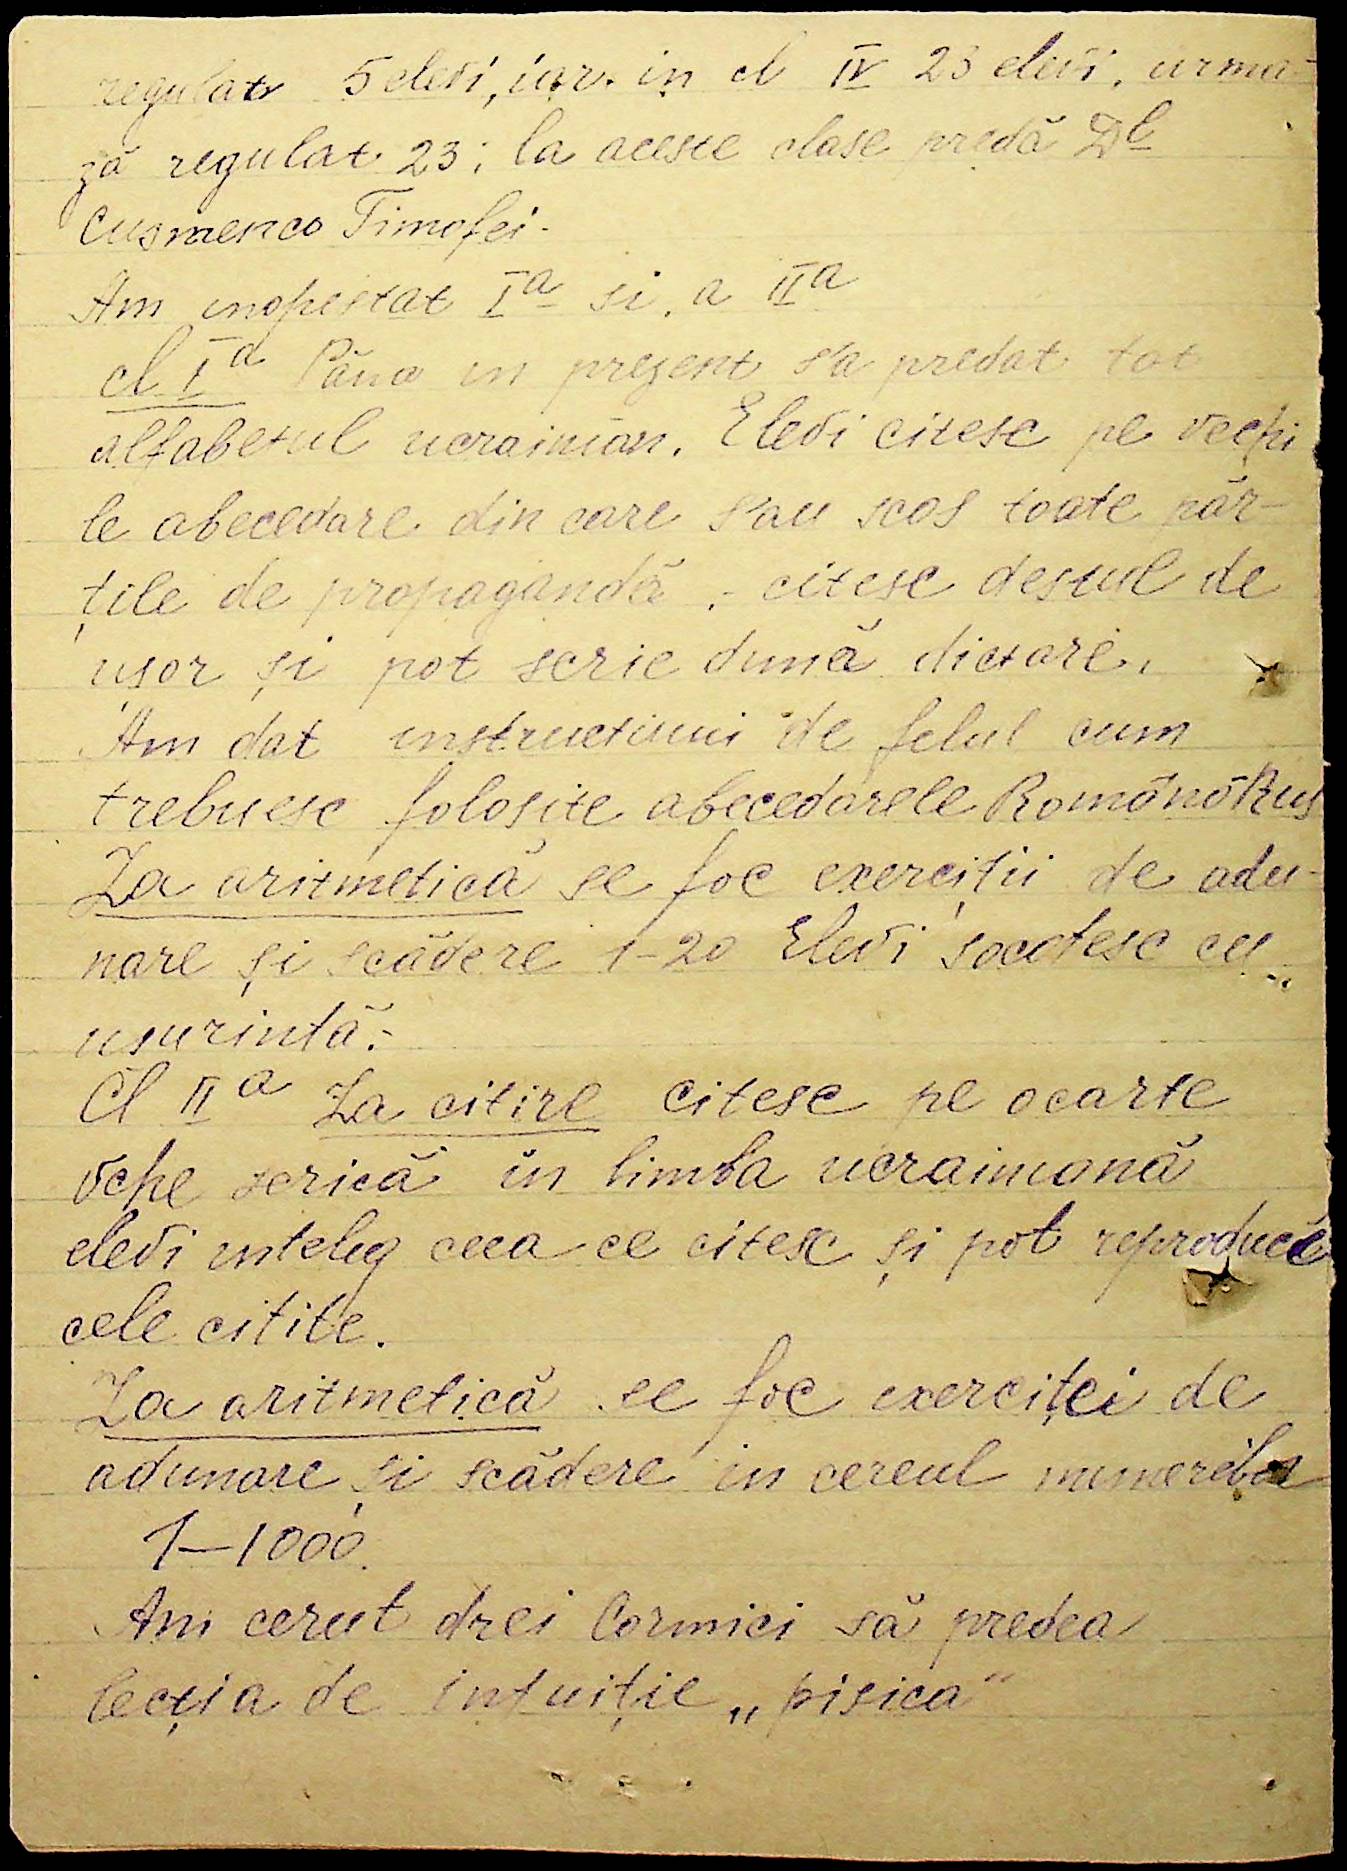 regulat 5 elevi, iar in cl IV 23 elevi, urmea-
ză regulat 23; la aceste clase predă Dl
Cusmenco Timofei.
Am inspectat I a si a II a
cl I a Până in prezent s'a predat tot
alfabetul ucrainian. Elevi citesc pe vechi
le abecedare din care s'au scos toate păr-
țile de propagandă, citesc destul de
ușor și pot scrie după dictare.
Am dat instructiuni de felul cum
trebuesc folosite abecedarele Românо Rus
La aritmetică se fac exerciții de adu-
nare și scădere 1-20 Elevi socotesc cu
usurintă.-
Cl II a La citire citesc pe ocarte
veche scrică in limba ucrainiană
elevi inteleg ceea ce citesc și pot reproduce
cele citite.
La aritmetică se fac exerciței de
adunare și scădere in cercul numerilor
1-1000.
Am cerut drei Cormici să predea
lecția de intuiție „pisica"